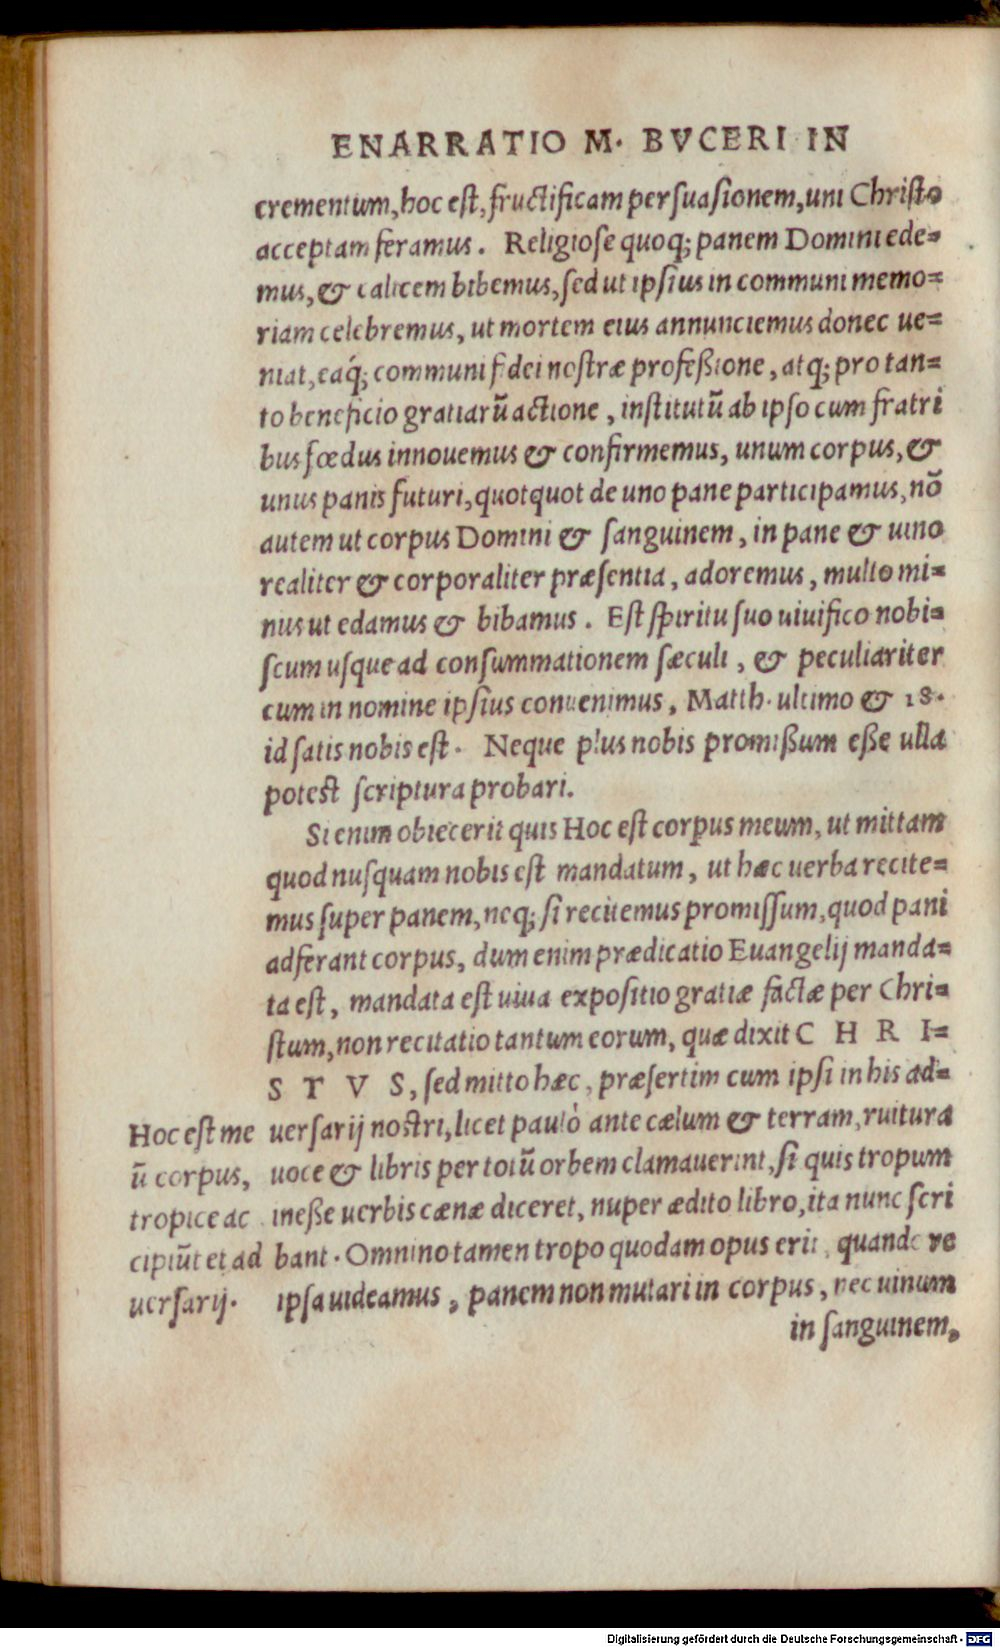 ENARRATIO M. BVCERI IN
crementum, hoc est, fructificam persuasionem, uni Christo
acceptam feramus. Religiose quoq; panem Domini ede=
mus, & calicem bibemus, sed ut ipsius in communi memo=
riam celebremus, ut mortem eius annunciemus donec ue=
niat, eaq́; communi fidei nostræ profeßione, atq; pro tan=
to beneficio gratiarũ actione, institutũ ab ipso cum fratri
bus fœdus innouemus & confirmemus, unum corpus, &
unus panis futuri, quotquot de uno pane participamus, nõ
autem ut corpus Domini & sanguinem, in pane & uino
realiter & corporaliter præsentia, adoremus, multo mi=
nus ut edamus & bibamus. Est spiritu suo uiuifico nobi=
scum usque ad consummationem sæculi, & peculiariter
cum in nomine ipsius conuenimus, Matth. ultimo & 18.
id satis nobis est. Neque plus nobis promißum eße ulla
potest scriptura probari.
Si enim obiecerit quis Hoc est corpus meum, ut mittam
quod nusquam nobis est mandatum, ut hæc uerba recite=
mus super panem, neq; si recitemus promissum, quod pani
adferant corpus, dum enim prædicatio Euangelij manda=
ta est, mandata est uiua expositio gratiæ factæ per Chri=
stum, non recitatio tantum eorum, quæ dixit C H R I=
S T V S, sed mitto hæc, præsertim cum ipsi in his ad=
uersarij nostri, licet paulò ante cælum & terram, ruitura
uoce & libris per totũ orbem clamauerint, si quis tropum
ineße uerbis cænæ diceret, nuper ædito libro, ita nunc scri
bant. Omnino tamen tropo quodam opus erit, quando re
ipsa uideamus, panem non mutari in corpus, nec uinum
in sanguinem,
Hoc est me
ũ corpus,
tropice ac
cipiũt et ad
uersarij.
Digitalisierung gefördert durch die Deutsche Forschungsgemeinschaft - DFG